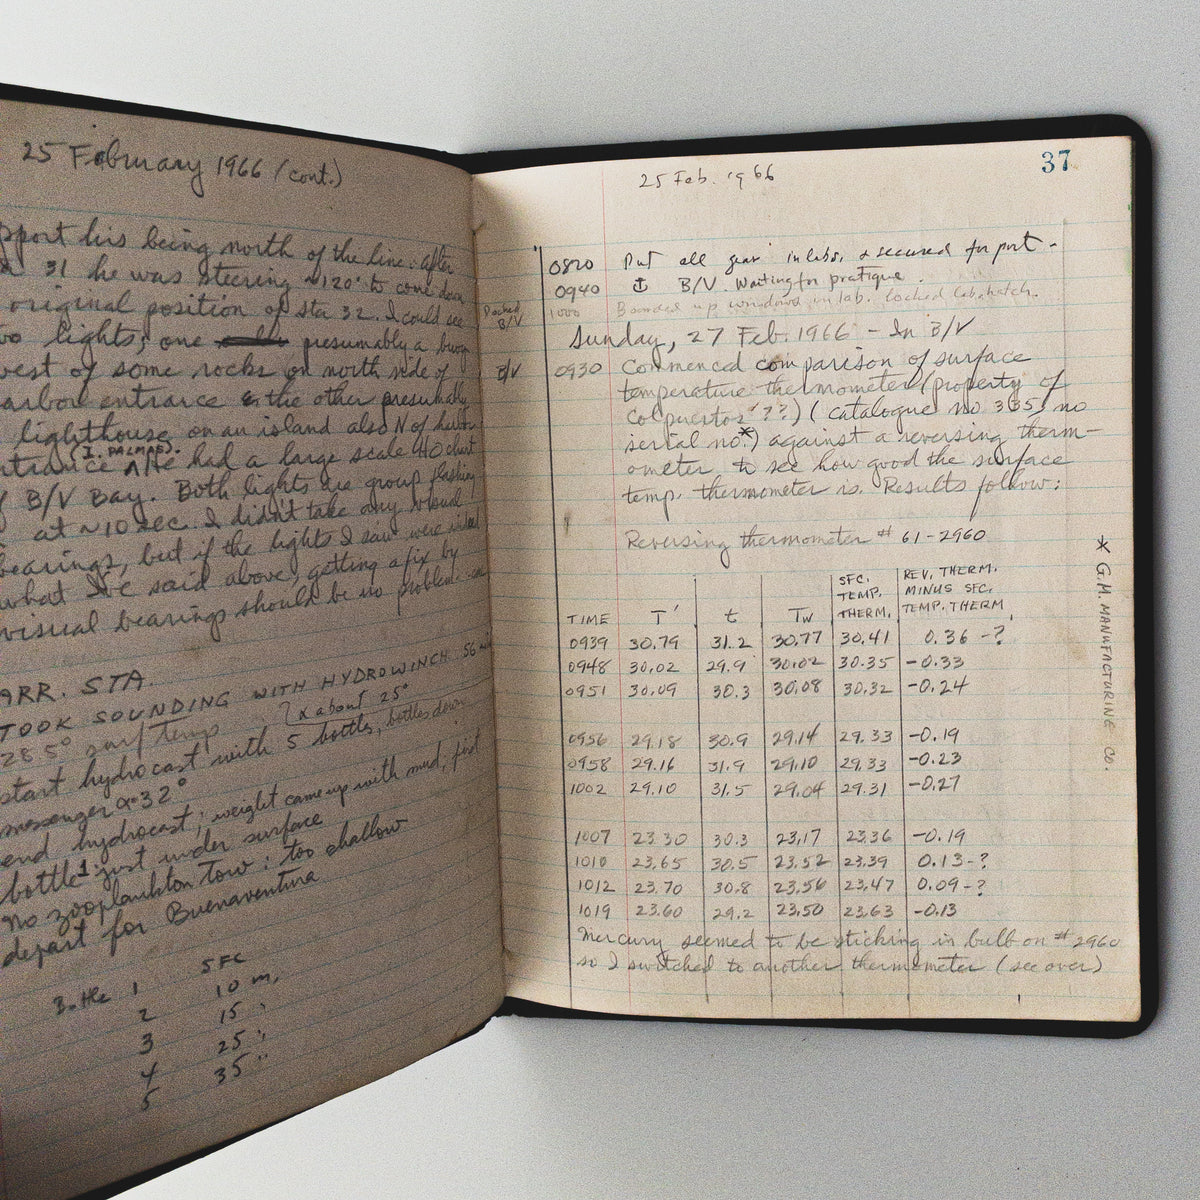 25 February 1966 (cont.)
pport his being north of the line: After
31 he was steering ~120° to come down
original position of sta 32. I could see
wo lights; one presumably a buoy
west of some rocks on north side of
arbor entrance & the other presumably
lighthouse on an island also N of harbor
(I. PALMAS).
ntrance ^ He had a large scale HO chart
f B/V Bay. Both lights are group flashing
at ~10 sec. I didn't take any visual
bearings, but if the lights I saw were indeed
what I've said above, getting a fix by
visual bearings should be no problem.
ARR. STA.
TOOK SOUNDING WITH HYDROWINCH 56
28.5° surf temp
∝ about 25°
start hydrocast with 5 bottles, bottles down
messenger ∝=32°
end hydrocast; weight came up with mud, first
bottle 1 just under surface
No zooplankton tow: too shallow
depart for Buenaventura
Bottle 1 SFC
2 10 m,
3 15 "
4 25 "
5 35 "
37
25 Feb. 1966
0820 Put all gear in labs, & secured for port -
0940 ⚓ B/V. Waiting for pratique.
Docked B/V 1000 Boarded up windows in lab. locked lab hatch.
Sunday, 27 Feb. 1966 - In B/V
B/V 0930 Commenced comparison of surface
temperature thermometer (property of
Colpuertos ???) (catalogue no 335, no
serial no.*) against a reversing therm-
ometer to see how good the surface
temp. thermometer is. Results follow:
Reversing thermometer # 61-2960
TIME T' t Tw SFC. TEMP. THERM. REV. THERM. MINUS SFC. TEMP. THERM
0939 30.79 31.2 30.77 30.41 0.36 -?
0948 30.02 29.9 30.02 30.35 -0.33
0951 30.09 30.3 30.08 30.32 -0.24
0956 29.18 30.9 29.14 29.33 -0.19
0958 29.16 31.9 29.10 29.33 -0.23
1002 29.10 31.5 29.04 29.31 -0.27
1007 23.30 30.3 23.17 23.36 -0.19
1010 23.65 30.5 23.52 23.39 0.13-?
1012 23.70 30.8 23.56 23.47 0.09-?
1019 23.60 29.2 23.50 23.63 -0.13
Mercury seemed to be sticking in bulb on # 2960
so I switched to another thermometer (see over)
* G.M. MANUFACTURING CO.